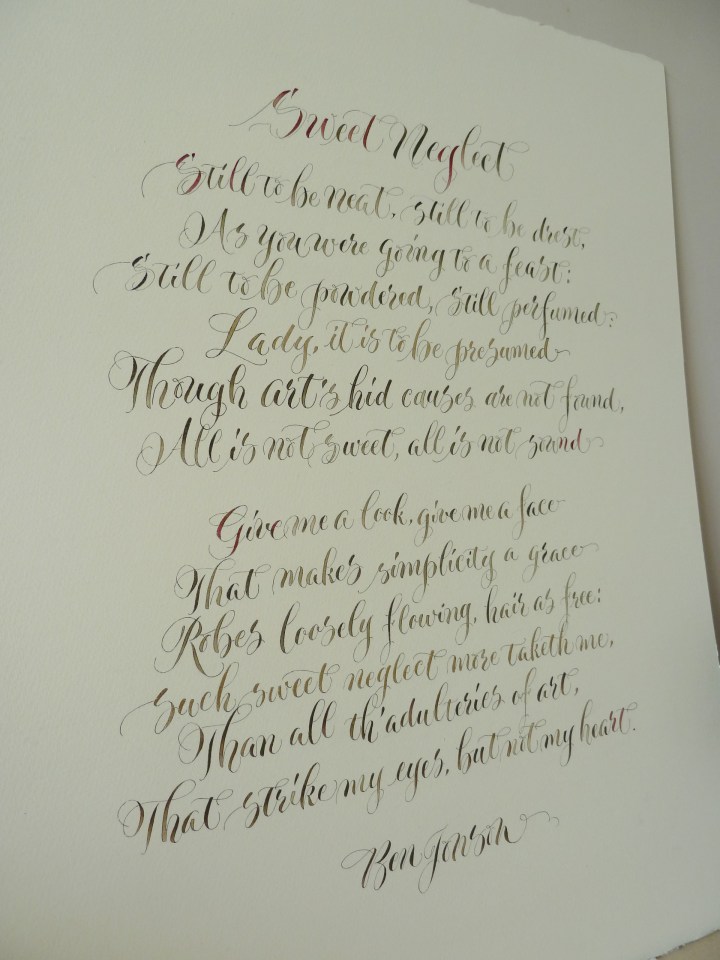 Sweet Neglect
Still to be neat, still to be drest,
As you were going to a feast:
Still to be powdered, still perfumed:
Lady, it is to be presumed
Though art's hid causes are not found,
All is not sweet, all is not sound
Give me a look, give me a face
That makes simplicity a grace
Robes loosely flowing, hair as free:
Such sweet neglect more taketh me,
Than all th'adulteries of art,
That strike my eyes, but not my heart.
Ben Jonson